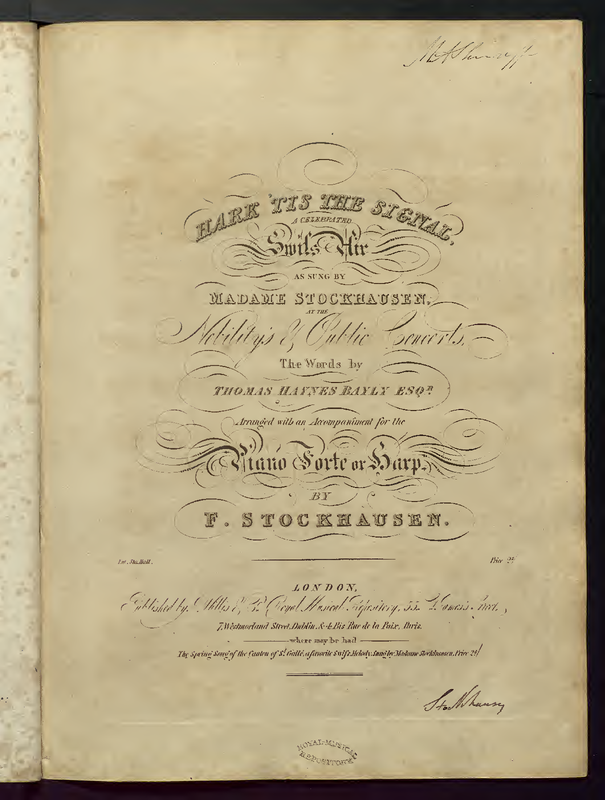 HARK 'TIS THE SIGNAL,
A CELEBRATED
Swiſs Air
AS SUNG BY
MADAME STOCKHAUSEN,
AT THE
Nobility's & Public Concerts,
The Words by
THOMAS HAYNES BAYLY ESQR.
Arranged with an Accompaniment for the
Piano Forte or Harp,
BY
F. STOCKHAUSEN.
Ent. Sta. Hall. Price 2/
LONDON,
Published by Willis & Co. Royal Musical Repository, 55. St. James's Street,
7, Westmorland Street, Dublin, & 4 Bis Rue de la Paix, Paris.
where may be had
The Spring Song of the Canton of St. Gallé, a favorite Swiſs Melody, Sung by Madame Stockhausen, Price 2/
Stockhausen
ROYAL MUSICAL
REPOSITORY